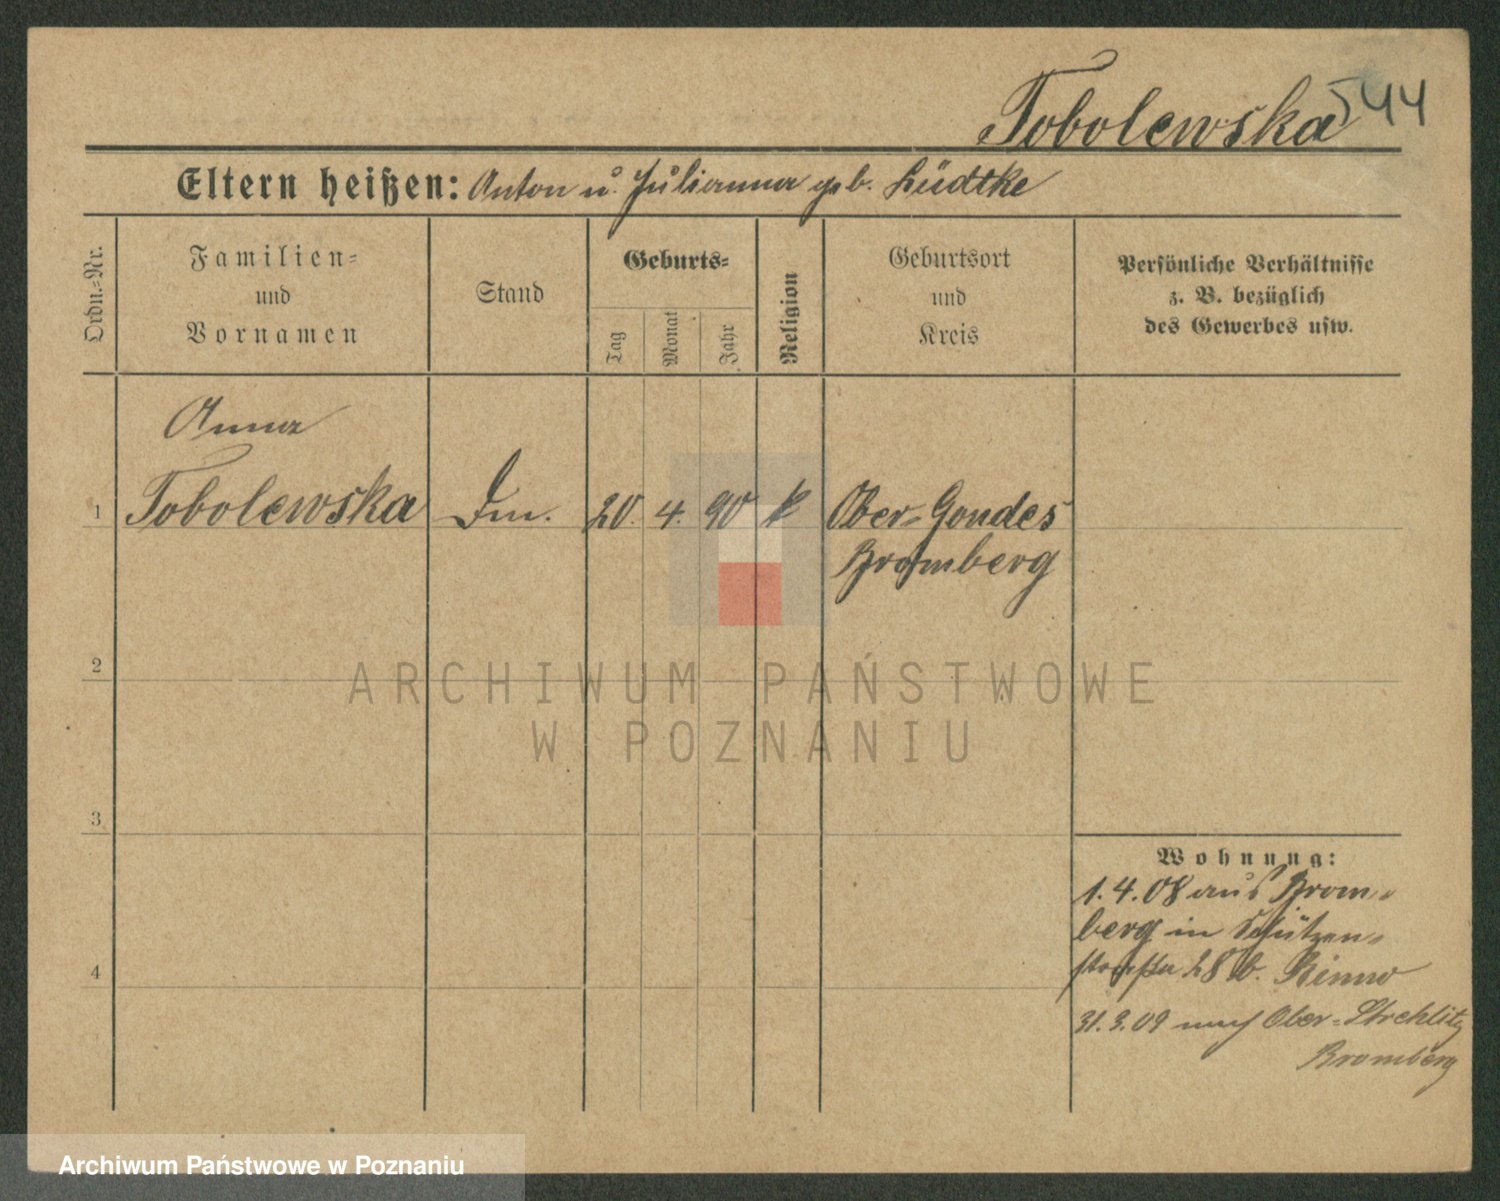 544
Tobolewska
Eltern heißen: Anton u. Julianna geb. Lüdtke
Ordn.-Nr.
Familien-
und
Vornamen
Stand
Geburts-
Tag
Monat
Jahr
Religion
Geburtsort
und
Kreis
Persönliche Verhältnisse
z. B. bezüglich
des Gewerbes usw.
Anna
1 Tobolewska Dm. 20. 4. 90 k Ober-Gondes
Bromberg
2
3
4
Wohnung:
1.4.08 aus Brom-
berg in Schützen-
straße 28 b.
31.3.09 nach Ober-Strehlitz
Bromberg
ARCHIWUM PAŃSTWOWE
W POZNANIU
Archiwum Państwowe w Poznaniu